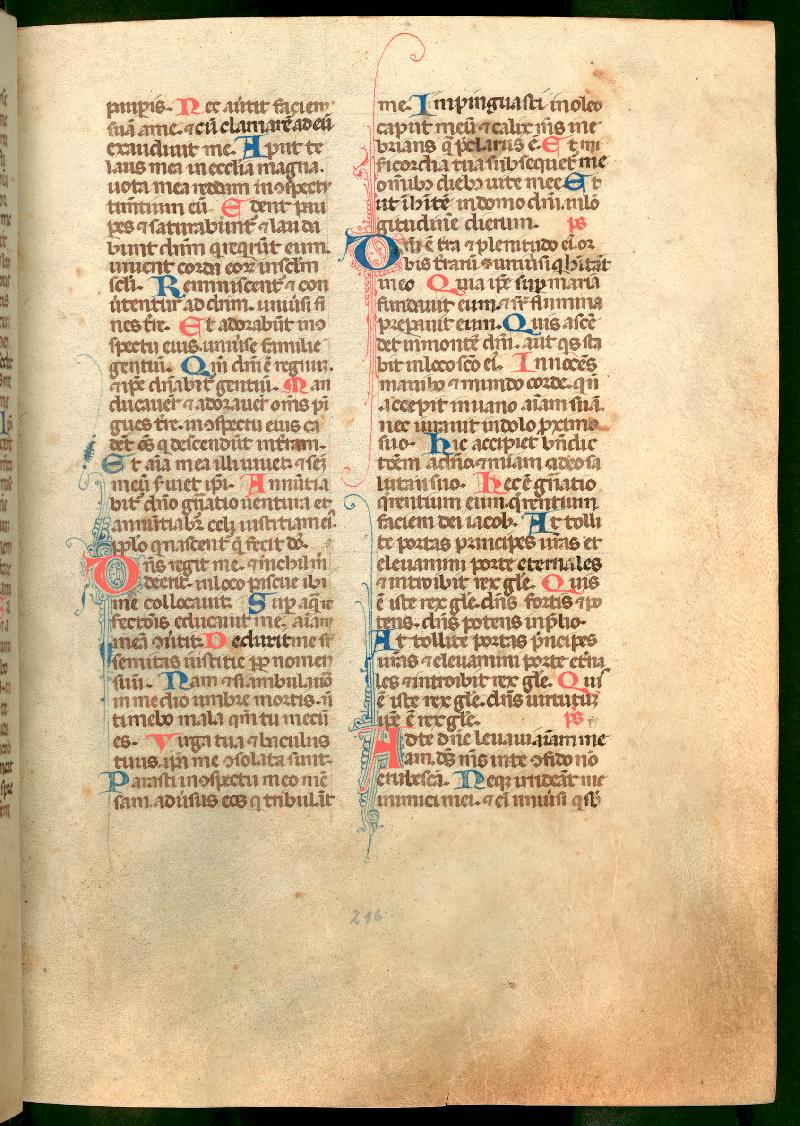 pauperis. Nec auertit faciem
suā a me. ⁊ cū clamarē ad eū
exaudiuit me. Aput te
laus mea in ecclia magna.
uota mea reddam in ↄspectu
timētium eū. Edent pau
pes ⁊ saturabunt̉ ⁊ lauda
bunt dnm qi reqrūt eum.
uiuent corda eoꝝ in sclm
scli. Reminiscent̉ ⁊ con
ũtentur ad dnm. uniũsi fi
nes tre. Et adorabūt in ↄ
spectu eius. uniũse familie
gentiū. Qm dni ē regnuꝫ.
⁊ ipe dnabit̉ gentiū. Man
ducauer̄t ⁊ adorauer̄t oms pī
gues tre. in ↄspectu eius ca
dēt oēs q descendūt in trram.
Et aīa mea illi uiuet. ⁊ semē
meū ſuiet ipi. Annūtia
bit̉ dno gn̄atio uentura et
annūtiabūt celi iustitiam ei.
pplo q nascet̉ q̄ fecit dn̄s.
Dn̄s regit me. ⁊ nichil m
deerit. in loco pascue ibi
me collocauit. Sup aq̄ re
fectōis educauit me. aīam
meā ↄũtit. Deduxit me sr̄
semitas iustitie ꝓp nomen
suū. Nam ⁊ si ambulauo
in medio umbre mortis. n̄
timebo mala qm tu mecū
es. Virga tua ⁊ baculus
tuus. ipa me ↄsolata sunt.
Parasti in ↄspectu meo mē
sam. aduersus eos q tribulāt
me. Impinguasti in oleo
caput meū ⁊ calix m̄s ine
brians q̄ p̄clarus ē. Et mi
sicordia tua subsequet̉ me
omībꝫ diebꝫ uite mee. Et
ut īhitē in domo dni. in lō
gitudine dierum. ps
Dn̄i ē tra ⁊ plenitudo ei. or
bis traꝝ ⁊ uniũsi q hītāt
in eo. Quia ipe sup maria
fundauit eum. ⁊ sr̄ flumina
preparuit eum. Quis ascē
det in montē dni. aut qs sta
bit in loco sco ei. Innocēs
manibꝫ ⁊ mundo corde. qi n̄
accepit in uano aīam suā.
nec iurauit in dolo ꝓximo
suo. Hic accipiet bn̄dic
tōem a dno. ⁊ miam a deo sa
lutari suo. Hec ē gn̄atio
q̄rentium eum. q̄rentium
faciem dei iacob. Attolli
te portas principes ur̄as et
eleuamini porte eternales
⁊ introibit rex gle. Quis
ē iste rex gle. dn̄s fortis ⁊ po
tens. dn̄s potens in p̄lio.
Attollite portas p̄ncipes
ur̄as ⁊ eleuamini porte etna
les ⁊ introibit rex gle. Quis
ē iste rex gle. dn̄s uirtutuꝫ
ipe ē rex gle. ps
Ad te dn̄e leuaui. aīam me
am. ds m̄s in te ↄfido nō
erubescā. Neqꝫ irrideāt me
inimici mei. ⁊ ei uniũsi q
216